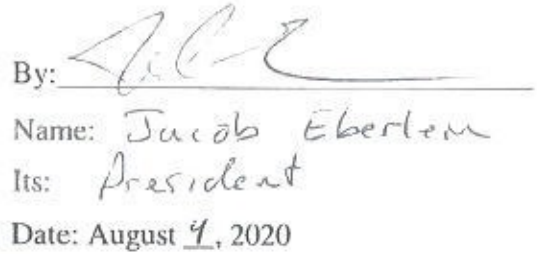 By:
Name: Jacob Eberlein
Its: President
Date: August 4, 2020